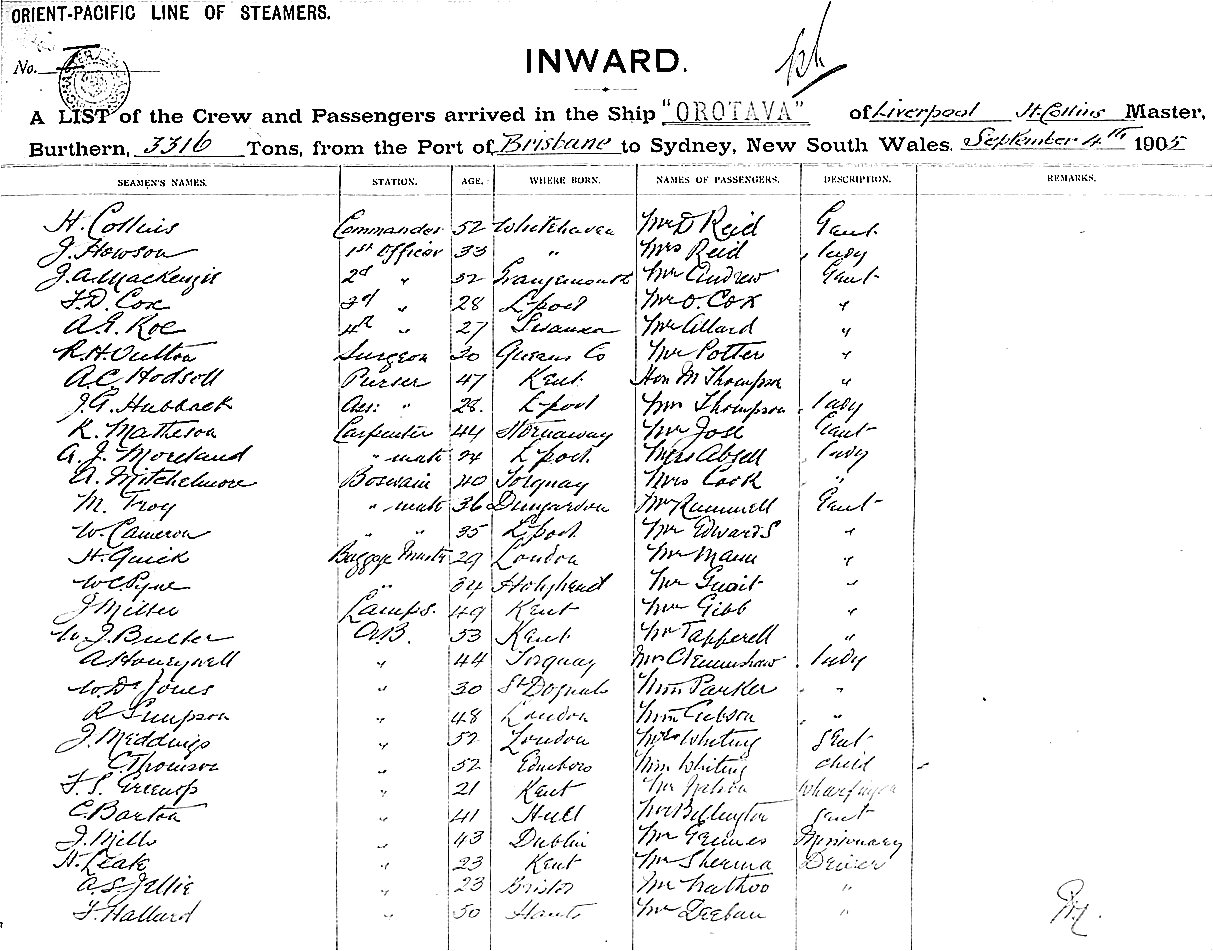 ORIENT-PACIFIC LINE OF STEAMERS.
No.
INWARD.
A LIST of the Crew and Passengers arrived in the Ship "OROTAVA" of Liverpool H. Collins Master,
Burthern, 3316 Tons, from the Port of Brisbane to Sydney, New South Wales. September 4th 1905
SEAMEN'S NAMES. STATION. AGE. WHERE BORN. NAMES OF PASSENGERS. DESCRIPTION. REMARKS.
H. Collins Commander 52 Whitehaven Mr D Reid Gent
J. Howson 1st Officer 33 " Mrs Reid lady
J.A. MacKenzie 2d " 52 Grangemouth Mr Andrew Gent
F.D. Cox 3d " 28 L'pool Mr O. Cox "
A.E. Roe 4th " 27 Swansea Mr Allard "
R.H. Oulton Surgeon 30 Queens Co Mr Potter "
A.C. Hodsoll Purser 47 Kent Hon M Thompson "
J.G. Hubback Ass: " 28. L'pool Mrs Thompson lady
K. Matheson Carpenter 44 Stornaway Mr Jose Gent
A. J. Moreland " mate 24 L'pool Miss Absell lady
A. Mitchelmore Boswain 40 Torquay Mrs Cook "
M. Troy " mate 36 Dungarvon Mr Rummell Gent
W. Cameron " " 35 L'pool Mr Edwards "
H. Quick Baggage Master 29 London Mr Mann "
W C Pyne " 34 Holyhead Mr Guait "
J Miller Lamps. 49 Kent Mr Gibb "
W. J. Butler A.B. 53 Kent Mr Tapperell "
A Honeywell " 44 Torquay Mrs Clemmshaw lady
W. D. Jones " 30 St Dogmals Miss Parker "
R Simpson " 48 London Miss Gibson "
J. Meddings " 52 London Mrs Whiting Gent
C Thomson " 52 Edinboro Miss Whiting child
F. S. Greenop " 21 Kent Mr Nelson Wharfinger
C. Barton " 41 Hull Mr Billington Gent
J. Mills " 43 Dublin Mr Grimes Missionary
H. Leak " 23 Kent Mr Sherma Driver
A. S. Jellie " 23 Bristol Mr Nathoo "
F. Hallard " 50 Hants Mr Deeban "